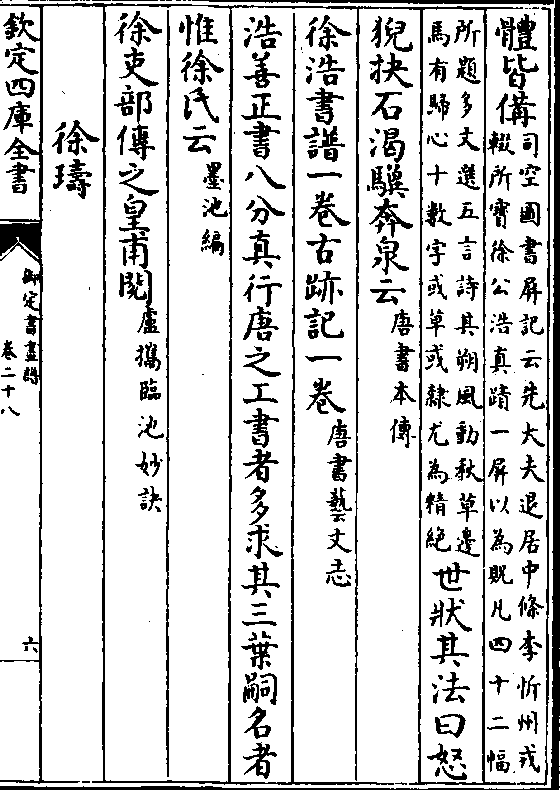 體皆備司空圖書屏記云先大夫退居中條李忻州戎
轍所寶徐公浩真蹟一屏以為貺凡四十二幅
所題多文選五言詩其朔風動秋草邊
馬有歸心十數字或草或隸尤為精絶世狀其法曰怒
猊抉石渴驥奔泉云唐書本傳
徐浩書譜一卷古跡記一卷唐書藝文志
浩善正書八分真行唐之工書者多求其三葉嗣名者
惟徐氏云墨池編
徐吏部傳之皇甫閱盧攜臨池妙訣
徐璹
欽定四庫全書
御定書畫譜
卷二十八
六